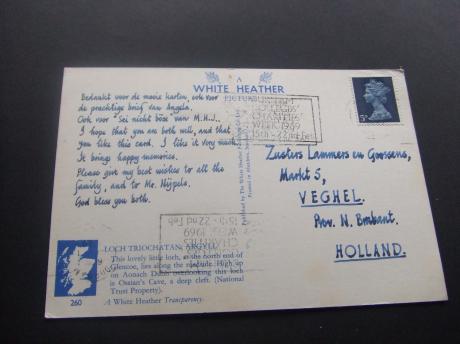 A
WHITE HEATHER
PICTURE
Bedankt voor de mooie kaarten, ook voor
de prachtige brief van Angela.
Ook voor "Sei nicht böse van M.H.J.
I hope that you are both well, and that
you like this card. I like it very much.
It brings happy memories.
Please give my best wishes to all the
family, and to Mr. Nijpels.
God bless you both.
CHARITIES
WEEK 1969
15th - 22nd Feb
5d
Zusters Lammers en Goossens,
Markt 5,
VEGHEL.
Prov. N. Brabant.
HOLLAND.
Published by The White Heather
CHARITIES
WEEK 1969
15th - 22nd Feb
LOCH TRIOCHATAN, ARGYLL
This lovely little loch, at the north end of
Glencoe, lies along the roadside. High up
on Aonach Dubh overlooking this loch
is Ossian's Cave, a deep cleft. (National
Trust Property).
260
A White Heather Transparency.